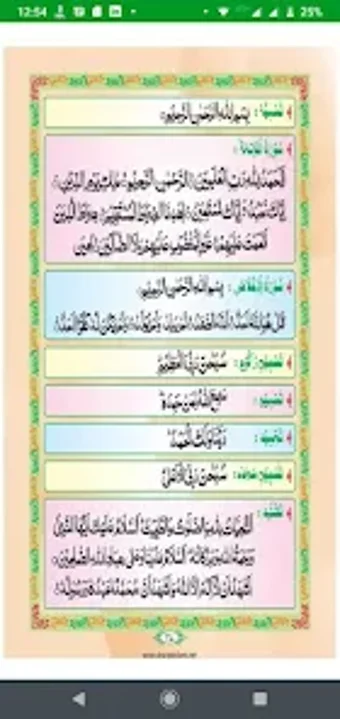 12:54
25%
تسمیہ: بِسْمِ اللهِ الرَّحْمٰنِ الرَّحِيْمِ
سُورَةُ الْفَاتِحَة:
اَلْحَمْدُ لِلّٰهِ رَبِّ الْعٰلَمِيْنَ الرَّحْمٰنِ الرَّحِيْمِ مٰلِكِ يَوْمِ الدِّيْنِ
اِيَّاكَ نَعْبُدُ وَاِيَّاكَ نَسْتَعِيْنُ اِهْدِنَا الصِّرَاطَ الْمُسْتَقِيْمَ صِرَاطَ الَّذِيْنَ
اَنْعَمْتَ عَلَيْهِمْ غَيْرِ الْمَغْضُوْبِ عَلَيْهِمْ وَلَا الضَّآلِّيْنَ اٰمِيْن
سُورَةُ الْاِخْلَاص: بِسْمِ اللهِ الرَّحْمٰنِ الرَّحِيْمِ
قُلْ هُوَ اللهُ اَحَدٌ اَللهُ الصَّمَدُ لَمْ يَلِدْ وَلَمْ يُوْلَدْ وَلَمْ يَكُنْ لَّهٗ كُفُوًا اَحَدٌ
تسبیح رکوع: سُبْحٰنَ رَبِّيَ الْعَظِيْمِ
تسمیع: سَمِعَ اللهُ لِمَنْ حَمِدَهٗ
تحمید: رَبَّنَا وَلَكَ الْحَمْدُ
تسبیح سجدہ: سُبْحٰنَ رَبِّيَ الْاَعْلٰى
تشہد:
اَلتَّحِيَّاتُ لِلّٰهِ وَالصَّلَوٰتُ وَالطَّيِّبٰتُ اَلسَّلَامُ عَلَيْكَ اَيُّهَا النَّبِيُّ
وَرَحْمَةُ اللهِ وَبَرَكَاتُهٗ اَلسَّلَامُ عَلَيْنَا وَعَلٰى عِبَادِ اللهِ الصّٰلِحِيْنَ
اَشْهَدُ اَنْ لَّا اِلٰهَ اِلَّا اللهُ وَاَشْهَدُ اَنَّ مُحَمَّدًا عَبْدُهٗ وَرَسُوْلُهٗ